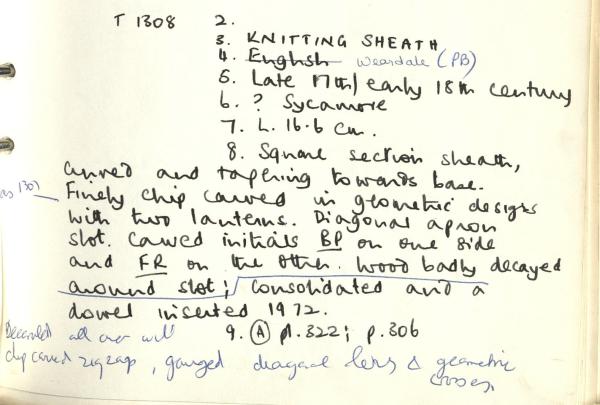 T 1308 2.
3. KNITTING SHEATH
4. English Weardale (PB)
5. Late 17th/early 18th century
6. ? Sycamore
7. L. 16.6 cm.
8. Square section sheath,
curved and tapering towards base.
as 1307
Finely chip carved in geometric designs
with two lanterns. Diagonal apron
slot. Carved initials BP on one side
and FR on the other. Wood badly decayed
around slot; consolidated and a
dowel inserted 1972.
9. (A) pl. 322; p. 306
Decorated all over with
chip carved zigzags, gouged diagonal & geometric
crosses